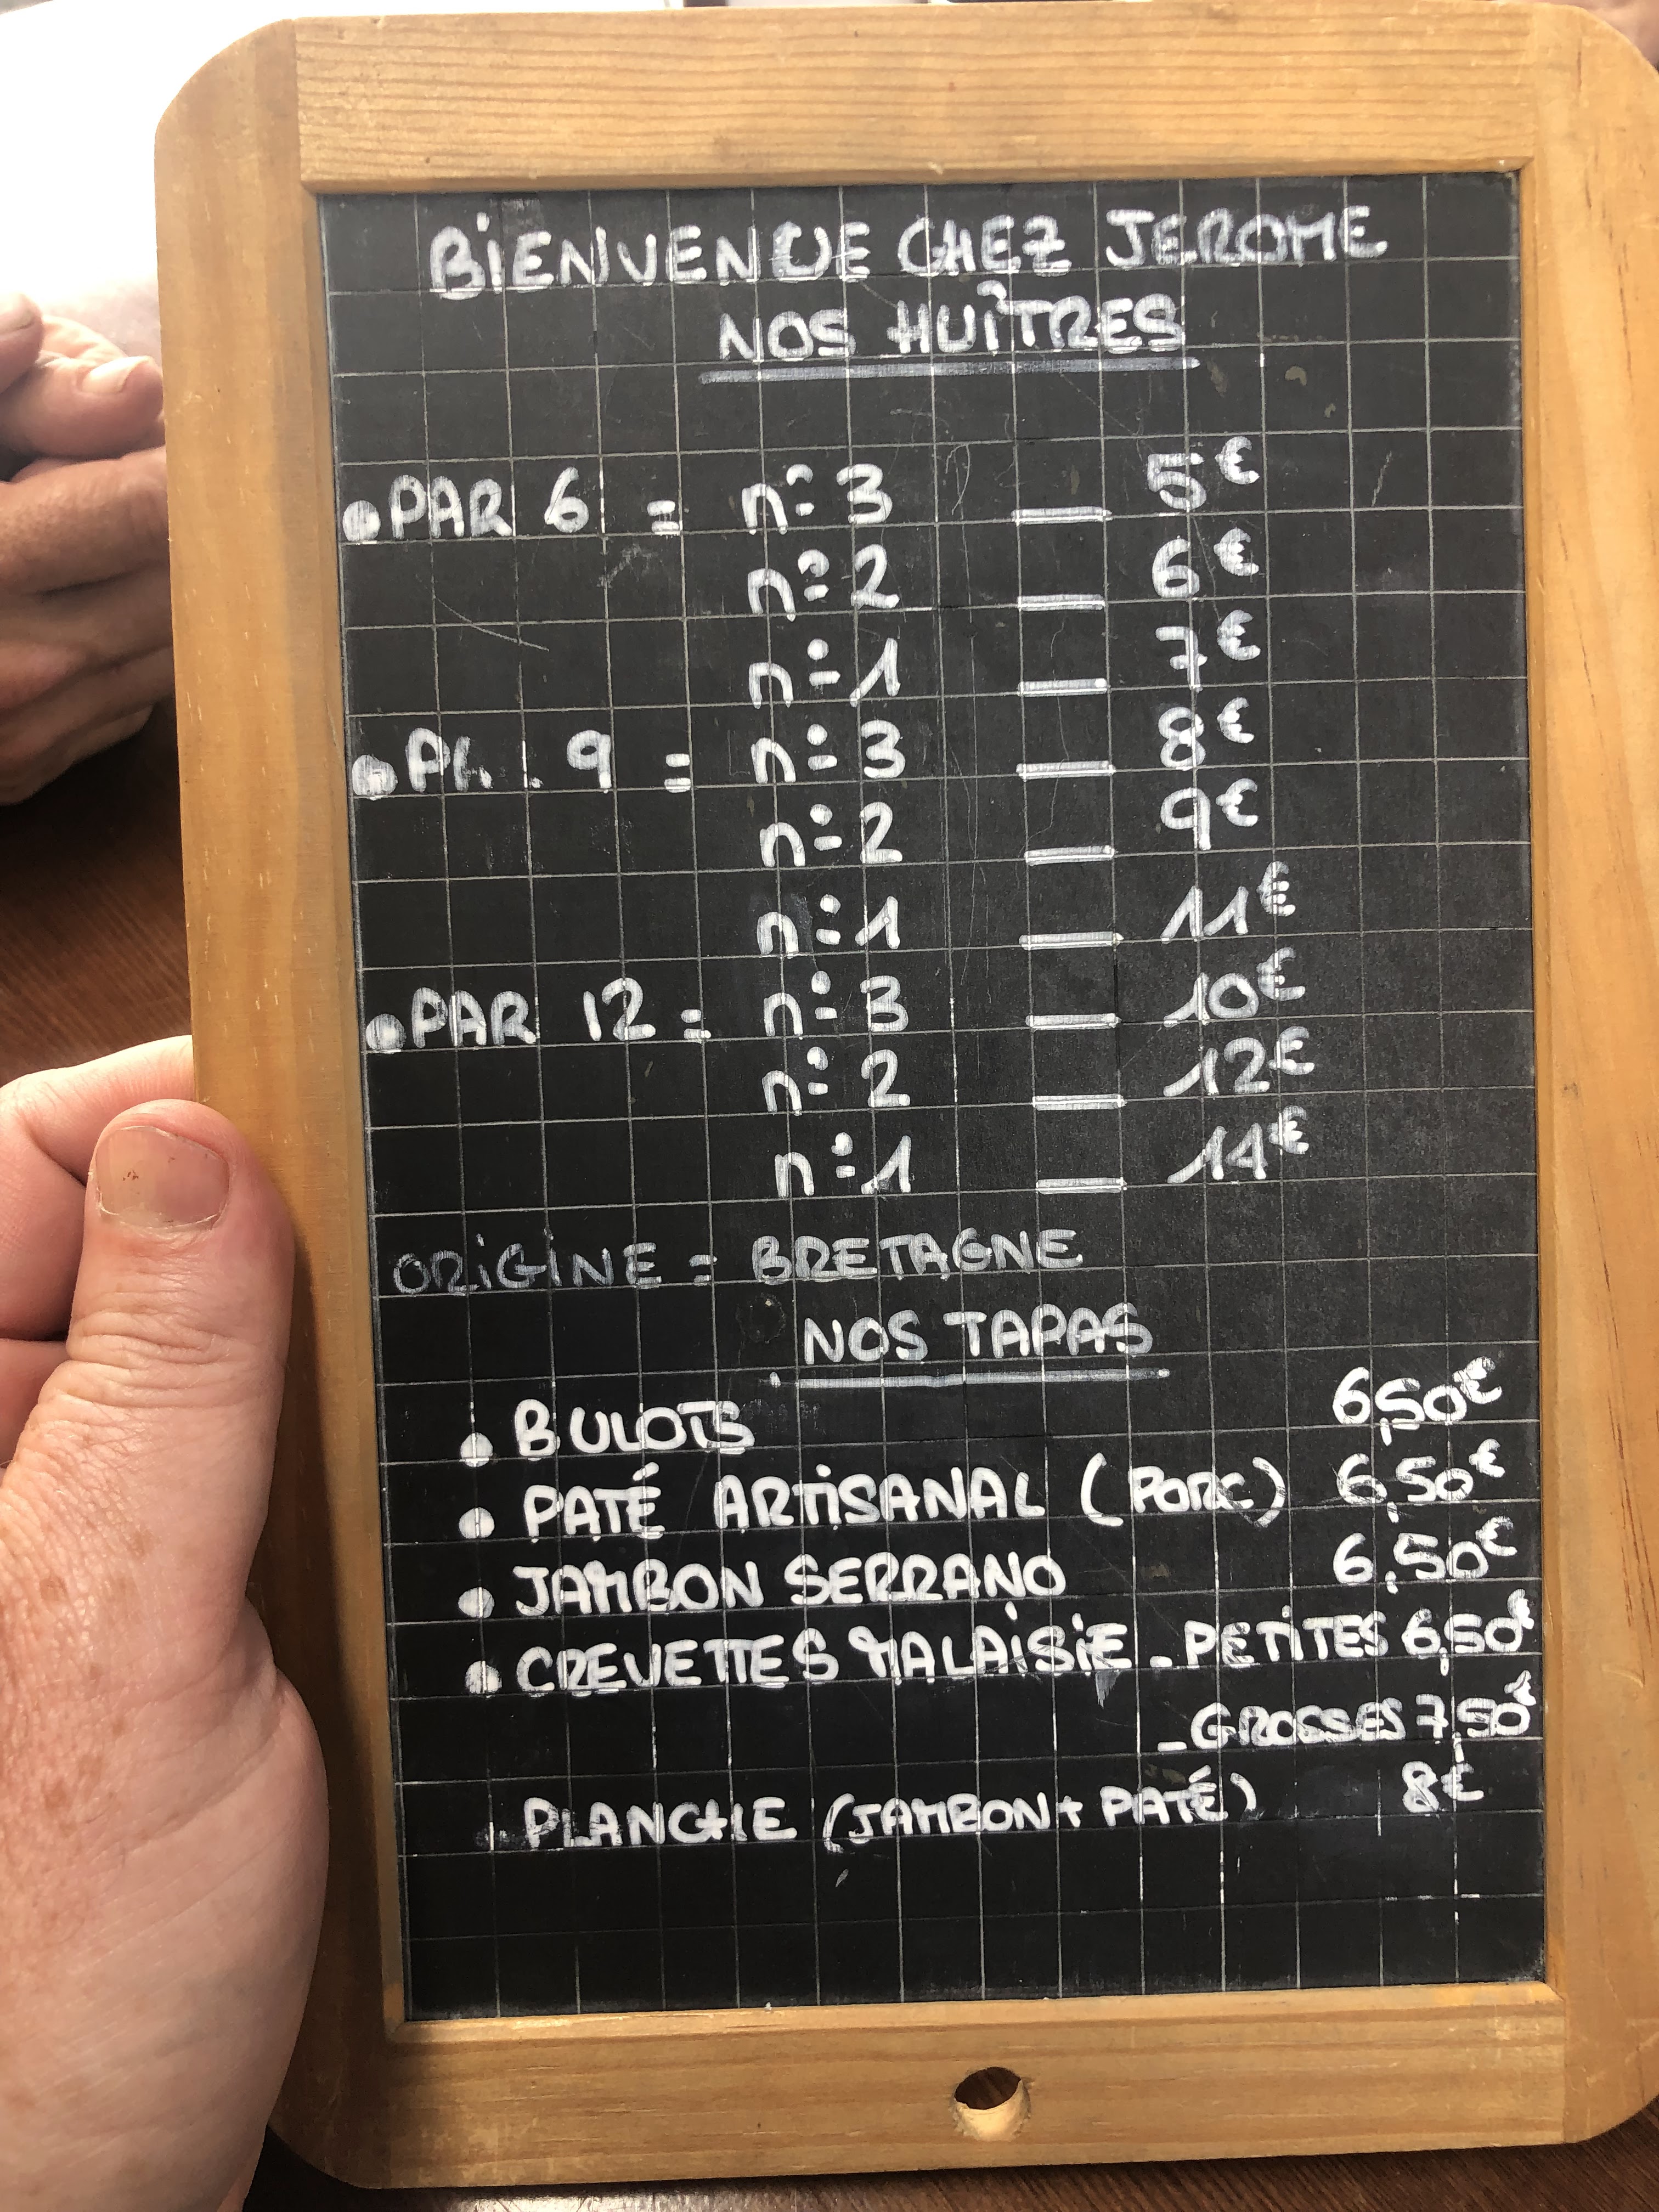 BIENVENUE CHEZ JEROME
NOS HUÎTRES
• PAR 6 = n° 3 — 5€
n° 2 — 6€
n° 1 — 7€
• 9 = n° 3 — 8€
n° 2 — 9€
n° 1 — 11€
• PAR 12 = n° 3 — 10€
n° 2 — 12€
n° 1 — 14€
ORIGINE = BRETAGNE
NOS TAPAS
• BULOTS 6,50€
• PATÉ ARTISANAL (PORC) 6,50€
• JAMBON SERRANO 6,50€
• CREVETTES MALAISIE - PETITES 6,50€
- GROSSES 7,50€
. PLANCHE (JAMBON + PATÉ) 8€